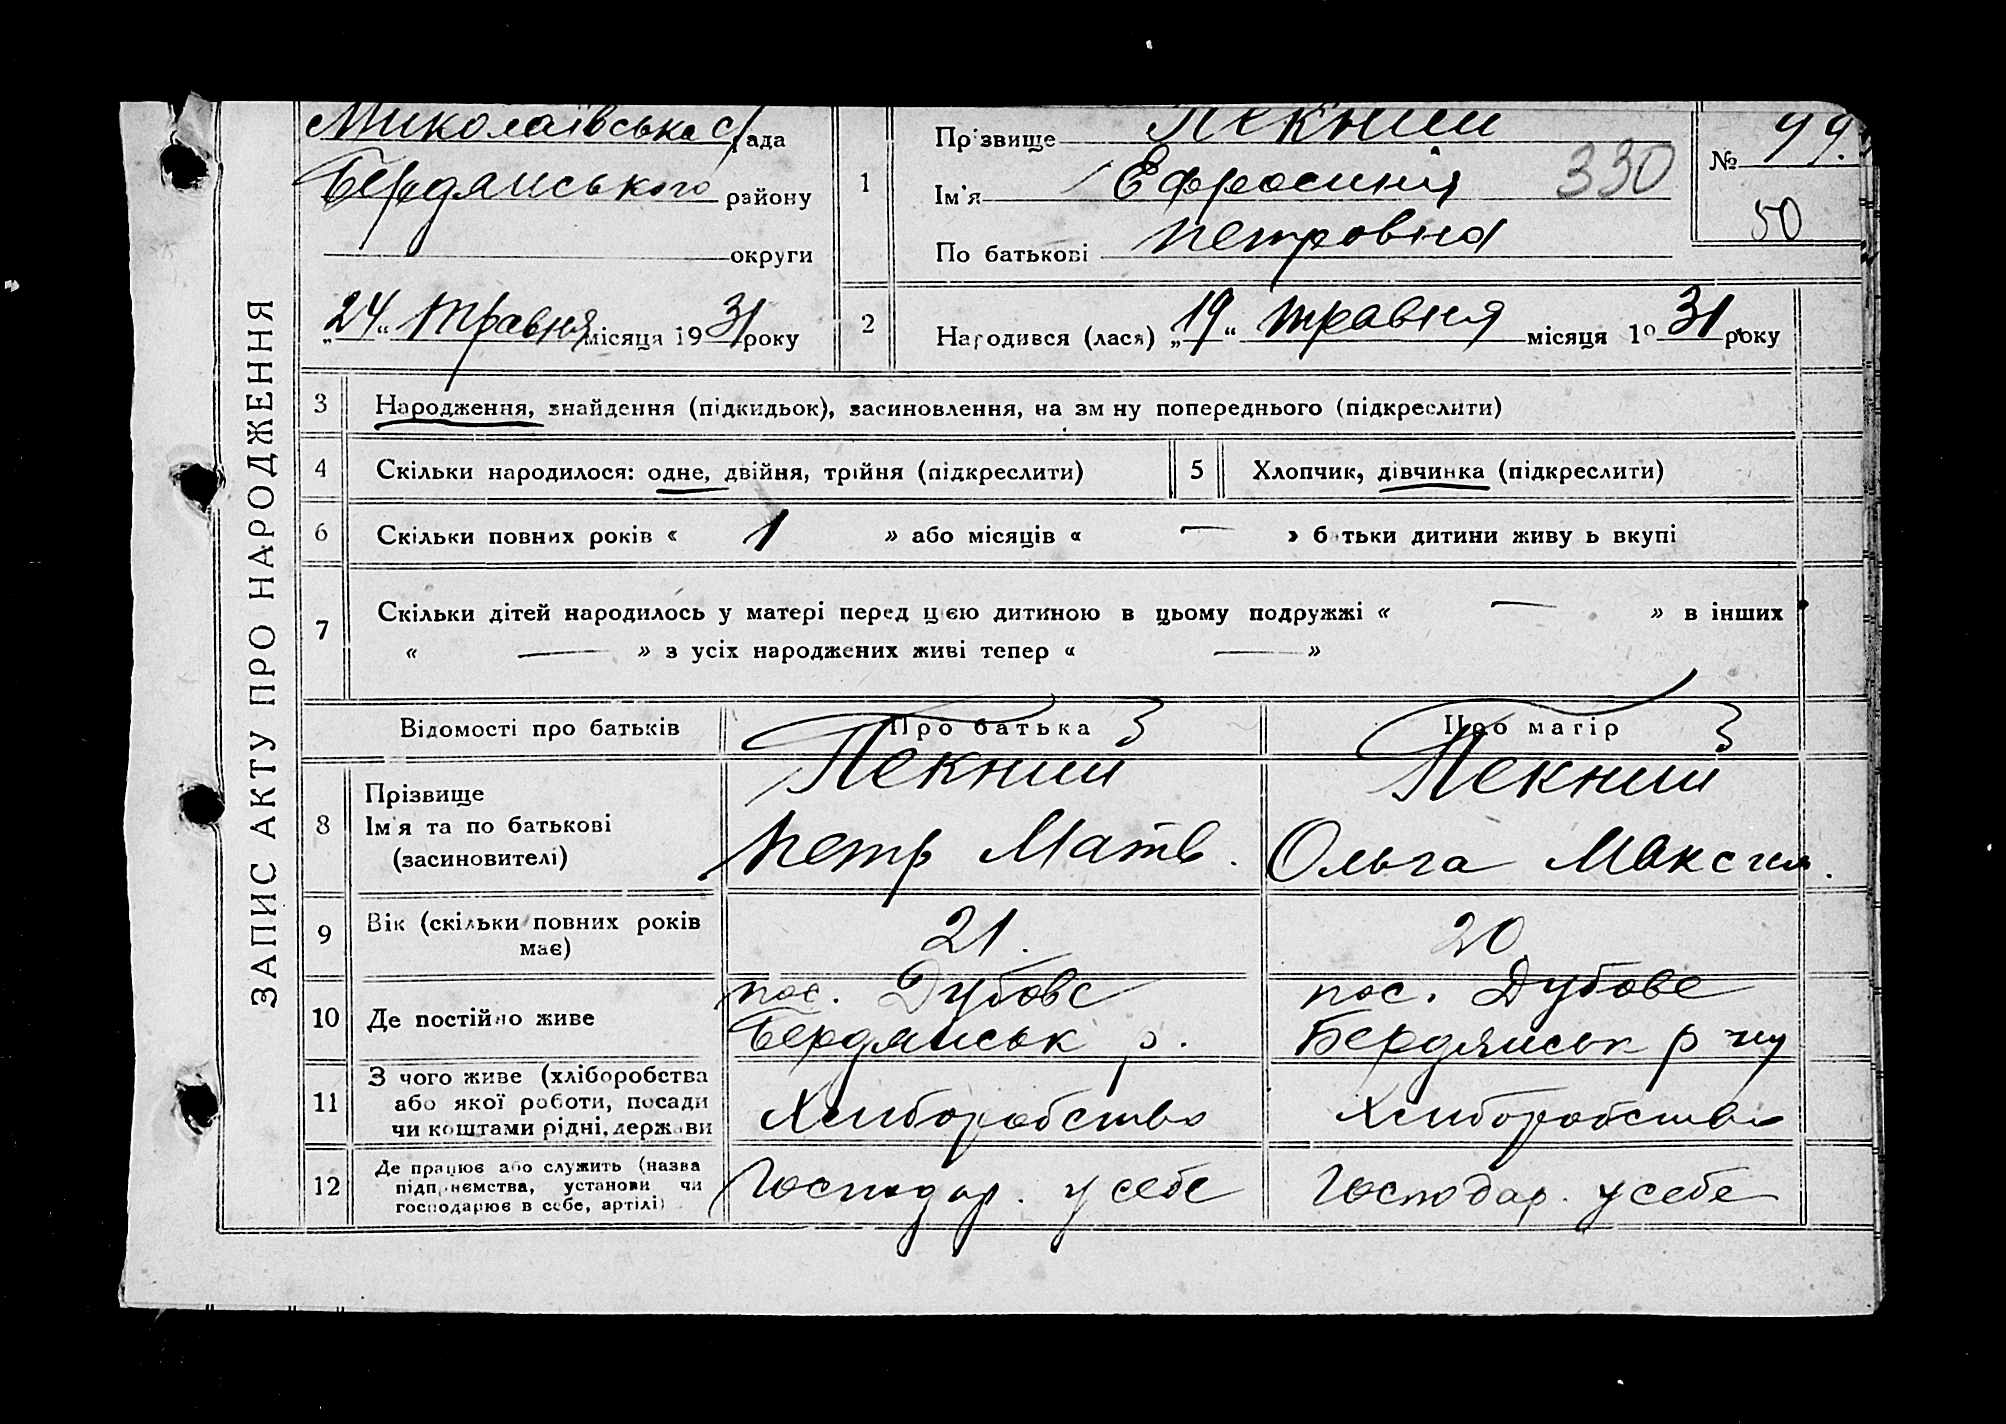 ЗАПИС АКТУ ПРО НАРОДЖЕННЯ
Миколаївська с/рада
Бердянського району
округи
„24“ травня місяця 1931 року
1
Прізвище Пекний
Ім'я Ефросинія 330
По батькові Петровна
№ 49.
50
2
Народився (лася) „19“ травня місяця 1931 року
3 Народження, знайдення (підкидьок), засиновлення, на зм ну попереднього (підкреслити)
4 Скільки народилося: одне, двійня, трійня (підкреслити)
5 Хлопчик, дівчинка (підкреслити)
6 Скільки повних років « 1 » або місяців « — » б тьки дитини живу ь вкупі
7 Скільки дітей народилось у матері перед цією дитиною в цьому подружжі « — » в інших
« — » з усіх народжених живі тепер « — »
Відомості про батьків
Про батька
Про матір
8 Прізвище
Ім'я та по батькові
(засиновителі)
Пекний
Петр Матв.
Пекний
Ольга Максим.
9 Вік (скільки повних років
має)
21.
20
10 Де постійно живе
пос. Дубове
Бердянськ р.
пос. Дубове
Бердянськ р ну
11 З чого живе (хліборобства
або якої роботи, посади
чи коштами рідні, держави
Хлиборобство
Хлиборобство
12 Де працює або служить (назва
підприємства, установи чи
господарює в себе, артілі)
Господар. у себе
Господар. у себе